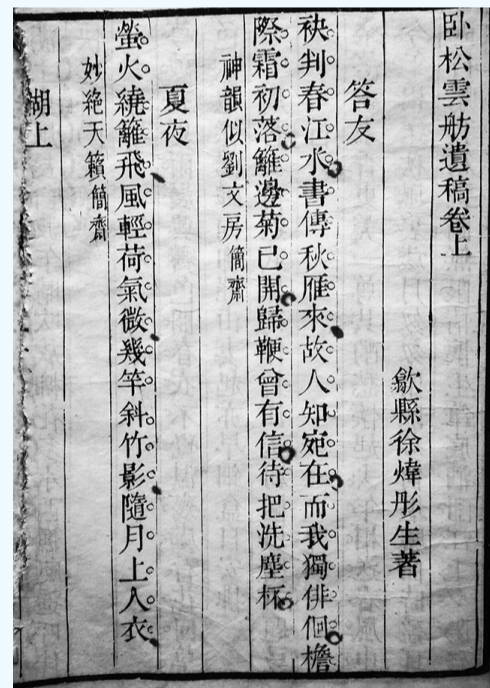 卧松雲舫遺稿卷上
歙縣徐煒彤生著
答友
袂判春江水書傳秋雁來故人知宛在而我獨徘徊檐
際霜初落籬邊菊已開歸鞭曾有信待把洗塵杯
神韻似劉文房簡齋
夏夜
螢火繞籬飛風輕荷氣微幾竿斜竹影隨月上人衣
妙絕天籟簡齋
湖上